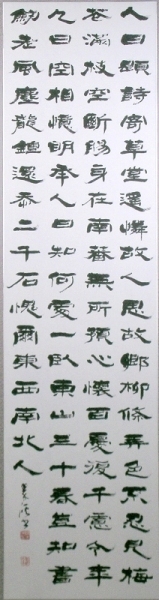 人日題詩寄草堂遙憐故人思故鄉柳條弄色不忍見梅
花滿枝空斷腸身在南蕃無所預心懷百憂復千慮今年
人日空相憶明年人日知何處一臥東山三十春豈知書
劍老風塵龍鍾還忝二千石愧爾東西南北人